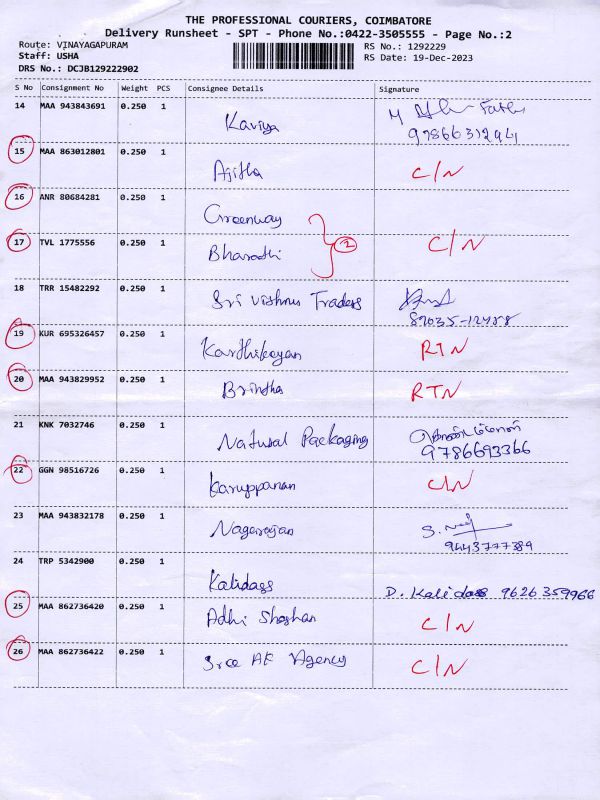 THE PROFESSIONAL COURIERS, COIMBATORE
Delivery Runsheet - SPT - Phone No.:0422-3505555 - Page No.:2
Route: VINAYAGAPURAM
RS No.: 1292229
Staff: USHA
RS Date: 19-Dec-2023
DRS No.: DCJB129222902
S No Consignment No Weight PCS Consignee Details Signature
14 MAA 943843691 0.250 1 Kaviya
9786631294
15 MAA 863012801 0.250 1 Ajitha C/N
16 ANR 80684281 0.250 1 Greenway
2
17 TVL 1775556 0.250 1 Bharathi C/N
18 TRR 15482292 0.250 1 Sri Vishnu Traders
89035-12488
19 KUR 695326457 0.250 1 Karthikeyan RTN
20 MAA 943829952 0.250 1 Brindha RTN
21 KNK 7032746 0.250 1 Natural Packaging
9786693366
22 GGN 98516726 0.250 1 Karuppanan C/N
23 MAA 943832178 0.250 1 Nagarajan
9443777389
24 TRP 5342900 0.250 1 Kalidass D. Kalidass 9626359966
25 MAA 862736420 0.250 1 Adhi Shashan C/N
26 MAA 862736422 0.250 1 Sree AE Agency C/N